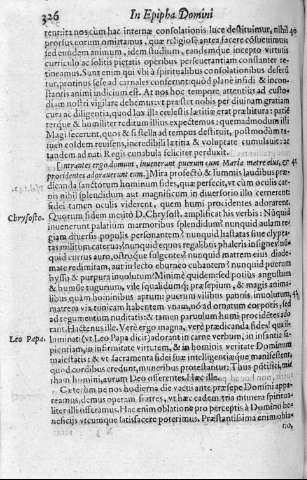 326 In Epipha. Domini
repente nos cum hac internæ consolationis luce destituimur, nihil
prorsus eorum omittamus, quæ religiose antea facere consuevimus
sed eundem animum, idem studium, eandemque incepto virtutis
curriculo ac solitis pietatis operibus perseverantiam constanter re-
tineamus. Sunt enim qui ubi à spiritualibus consolationibus deseru
tur, protinus sese ad carnales conservant: quod plane infidi & incon-
stantis animi indicium est. At nos hoc tempore attentius ad custo-
diam nostri vigilare debemus
cura ac diligentia, quod lux illa cœlestis
terque & humiliter reditum illius expectemus: quemadmodum illi
Magi fecerunt, quos & si stella ad tempus destituit, postmodum ta-
men eosdem revisens, incredibili lætitia & voluptate cumulauit: ac
tandem ad nati Regis cunabula feliciter perduxit.
Intrantes ergo domum, invenerunt puerum cum Maria matre eius, &
procidentes adoraverunt eum.] Mira profectò & summis laudibus præ-
dicanda sanctorum hominum fides, quæ perfecit, vt cùm oculis car-
nis nihil splendidum aut magnificum in diversorio illo cernerent
fidei tamen oculis viderent, quem humi procidentes adorarent.
Chrysosto. Quorum fidem meritò D. Chrysost. amplificat his verbis: Nunquid
invenerunt palatium marmoribus splendidum? nunquid aulam re-
giam diversis populis personantem? nunquid hastatas sive clype-
atas militum catervas? nunquid equos regalibus phaleris insignes? nun
quid currus auro, ostroque fulgentes? nunquid matrem eius diade-
mate redimitam, aut in lecto eburneo cubantem? nunquid puerum
bysso & purpura involutum? Minimè quidem: sed potius angustum
& humile tugurium, vile
libus quàm hominibus aptum: puerum vilibus pannis involutum,
matrem vix tunicam habentem vnam, nõ ad ornatum corporis, sed
ad tegumentum nuditatis: & tamen parvulum humi procidētes ado
rant. Hactenus ille. Verè ergo magna, verè prædicanda fides! qua il-
Leo Papa. luminati (vt Leo Papa dicit) adorant in carne verbum, in infantia sa-
pientiam, in infirmitate virtutem, & in hominis veritate Dominum
maiestatis: & vt sacramenta fidei suæ intelligentiæque manifestent,
quod cordibus credunt, muneribus protestantur: Thus
rham homini, aurum Deo offerentes. Hæc ille.
Cæterùm ne nos hodierna die vacui ante præsepe Domini appa-
reamus, demus operam fratres, vt hæc eadem tria munera spiritua-
liter illi offeramus. Hac enim oblatione pro perceptis à Domino be-
neficiis vtcumque satisfacere poterimus. Præstantissima enim obla-